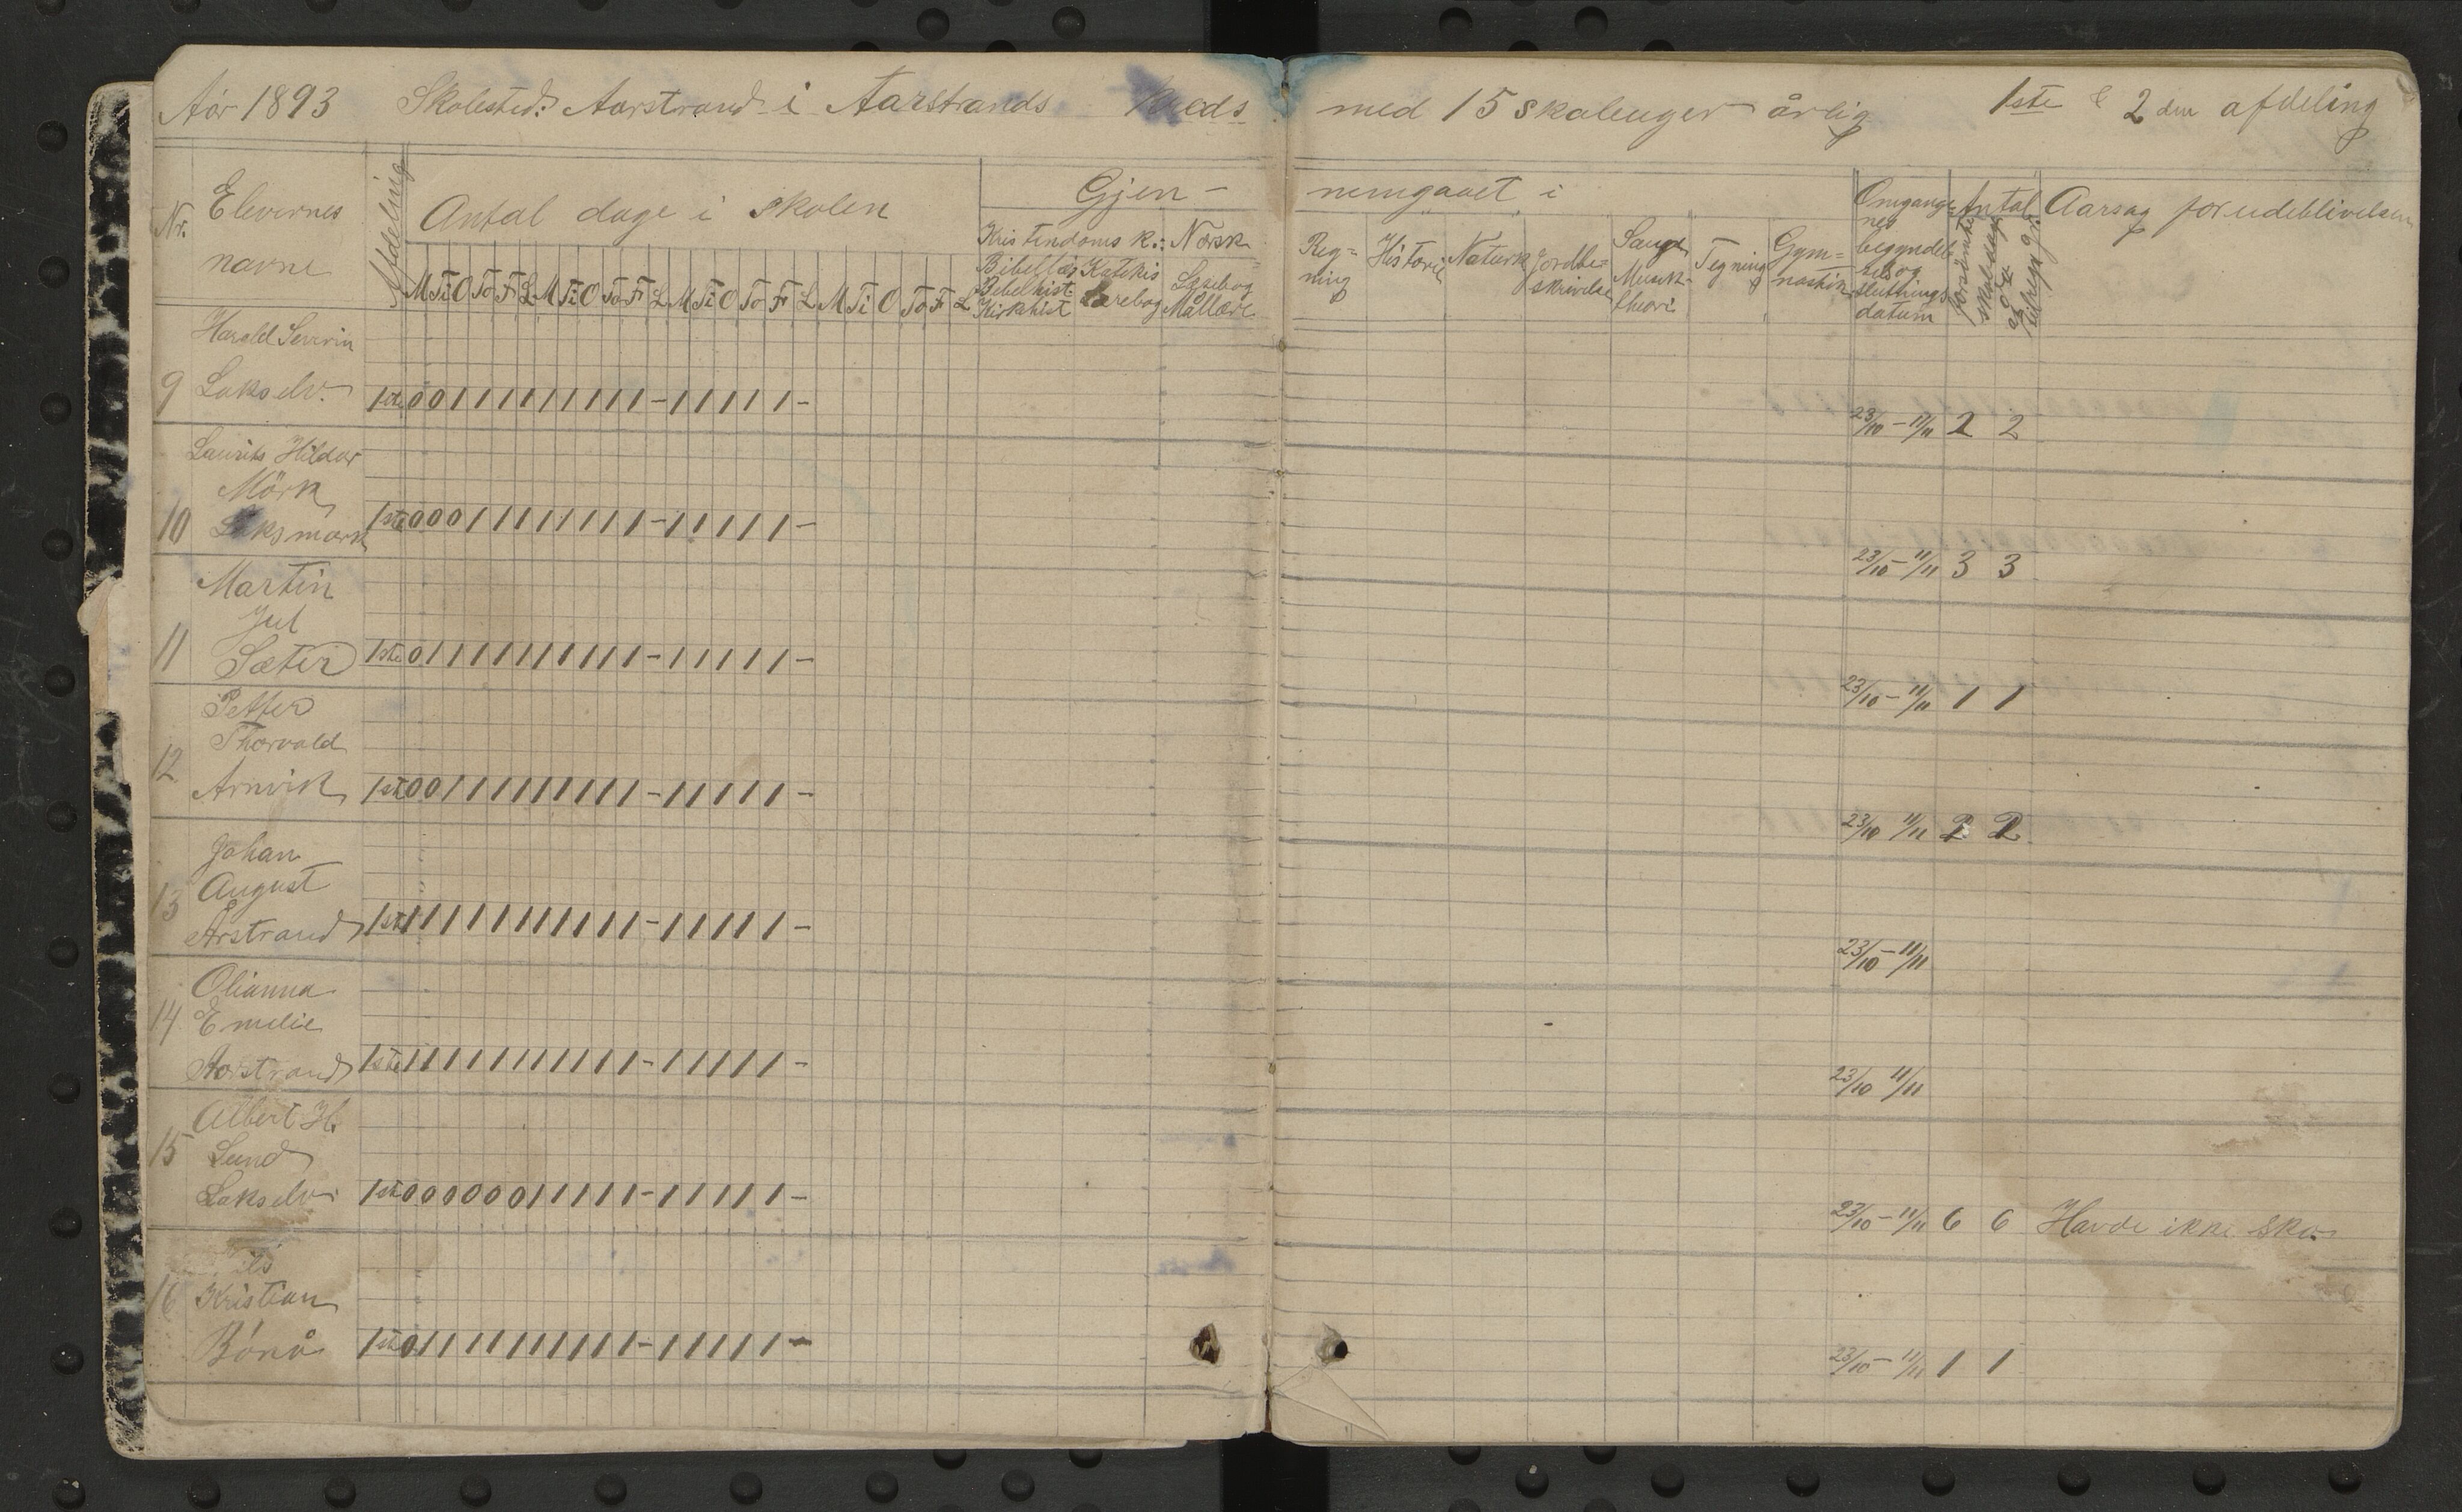 Aar 1893 Skolested: Aarstrand i Aarstrands Kreds med 15 skoleuger årlig 1ste & 2den afdeling
Nr. Elevernes navne Afdeling Antal dage i skolen Gjen- nemgaaet i Omgange- nes begyndel- ses og slutnings datum Antal Aarsag for udeblivelsen
Kristendoms k.: Norsk
Bibellæs Katekis Læsebog
Bibelhist. Lærebog Mållære
Kirkehist
Reg- ning Historie Naturk Jordbe- skrivelse Sang Musik- theori Tegning Gym- nastik
forsömte skoledage
M Ti O To F L M Ti O To F L M Ti O To F L M Ti O To F L
Harald Severin
9 Lakselv. 1ste 0 0 1 1 1 1 1 1 1 1 1 1 - 1 1 1 1 1 - 23/10 - 11/11 2 2
Laurits Hildor
Mörk
10 Laksmark 1ste 0 0 0 1 1 1 1 1 1 1 1 1 - 1 1 1 1 1 - 23/10 - 11/11 3 3
Martin
Jul
11 Sæter 1ste 0 1 1 1 1 1 1 1 1 1 1 1 - 1 1 1 1 1 - 23/10 - 11/11 1 1
Petter
Thorvald
12 Arnvik 1ste 0 0 1 1 1 1 1 1 1 1 1 1 - 1 1 1 1 1 - 23/10 11/11 2 2
Johan
August
13 Årstrand 1ste 1 1 1 1 1 1 1 1 1 1 1 1 - 1 1 1 1 1 - 23/10 - 11/11
Olianna
14 Emelie
Aarstrand 1ste 1 1 1 1 1 1 1 1 1 1 1 1 - 1 1 1 1 1 - 23/10 11/11
Albert H.
15 Lund
Lakselv 1ste 0 0 0 0 0 0 1 1 1 1 1 1 - 1 1 1 1 1 - 23/10 - 11/11 6 6 Havde ikke sko.
16 Kristian
Bönå 1ste 0 1 1 1 1 1 1 1 1 1 1 1 - 1 1 1 1 1 - 23/10 - 11/11 1 1